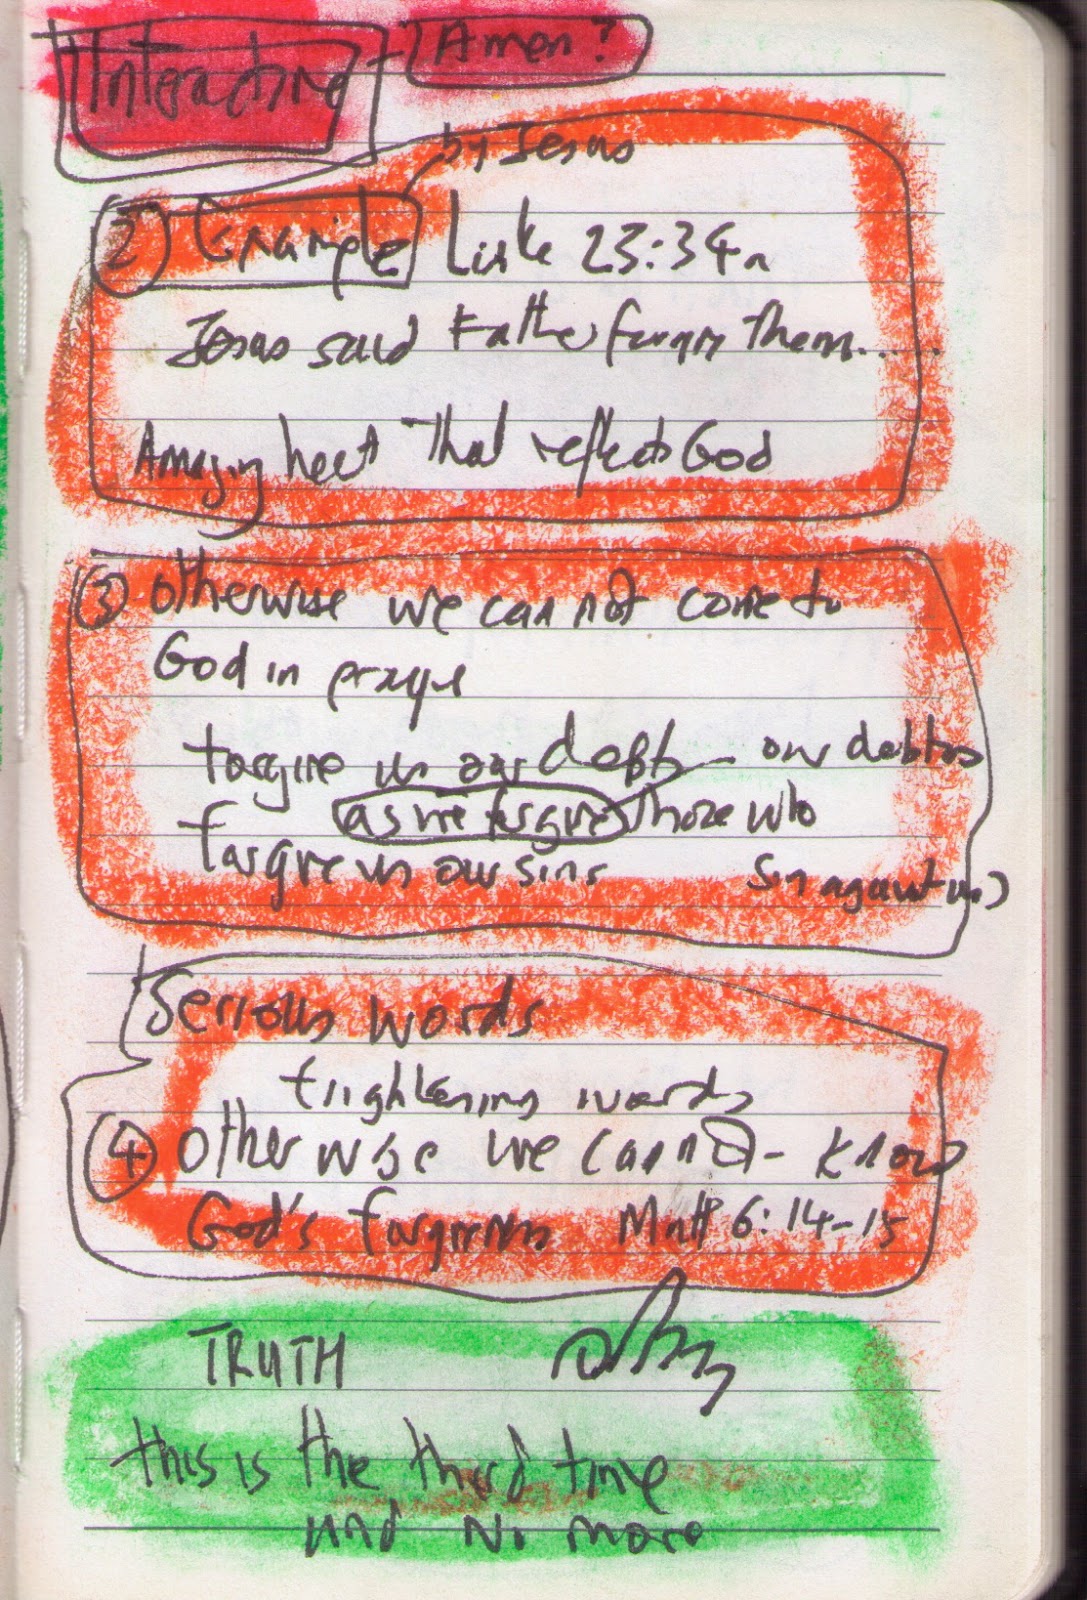 Interactive Amen?
by Jesus
② Example Luke 23:34a
Jesus said Father forgive them.....
Amazing heart that reflects God
③ otherwise we can not come to
God in prayer
forgive us our debts - our debtors
as we forgive those who
forgive us our sins sin against us)
Serious words
frightening words
④ otherwise we cannot - know
God's forgiveness Matt 6:14-15
TRUTH
this is the third time
and no more